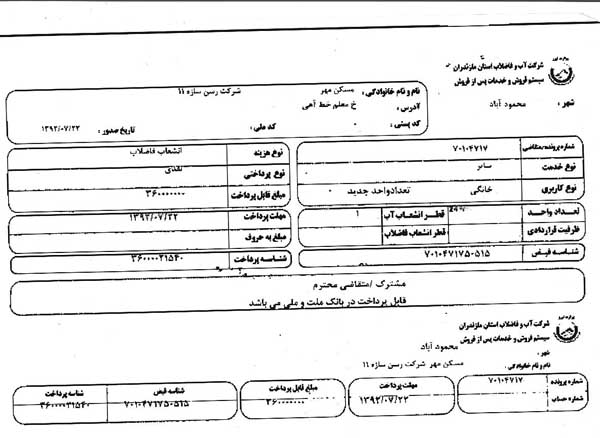 شرکت آب و فاضلاب استان مازندران
سیستم فروش و خدمات پس از فروش
شهر : محمود آباد
نام و نام خانوادگی : مسکن مهر شرکت رسن سازه ۱۱
آدرس : خ معلم خط آهی
کد پستی : کد ملی : تاریخ صدور : ۱۳۹۲/۰۷/۲۲
شماره پرونده/متقاضی ۷۰۱۰۴۷۱۷
نوع خدمت سایر
نوع کاربری خانگی تعدادواحد جدید ۰
تعداد واحد قطر انشعاب آب ۱
ظرفیت قراردادی قطر انشعاب فاضلاب
شناسه قبض ۷۰۱۰۴۷۱۷۵۰۵۱۵
نوع هزینه انشعاب فاضلاب
نوع پرداختی نقدی
مبلغ قابل پرداخت ۳۶۰۰۰۰۰۰۰
مهلت پرداخت ۱۳۹۲/۰۷/۲۲
مبلغ به حروف
شناسه پرداخت ۳۶۰۰۰۰۲۱۵۴۰
مشترک /متقاضی محترم
قابل پرداخت در بانک ملت و ملی می باشد
شرکت آب و فاضلاب استان مازندران
سیستم فروش و خدمات پس از فروش
شهر : محمود آباد
نام و نام خانوادگی : مسکن مهر شرکت رسن سازه ۱۱
شماره پرونده ۷۰۱۰۴۷۱۷
شماره حساب
مهلت پرداخت ۱۳۹۲/۰۷/۲۲
مبلغ قابل پرداخت ۳۶۰۰۰۰۰۰۰
شناسه قبض ۷۰۱۰۴۷۱۷۵۰۵۱۵
شناسه پرداخت ۳۶۰۰۰۰۲۱۵۴۰